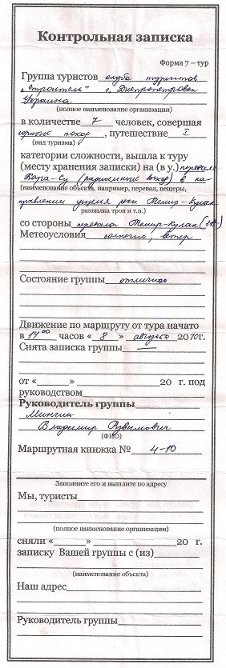 Контрольная записка
Форма 7 – тур
Группа туристов клуба туристов
„Строитель“ г. Днепропетровск
Украина
(полное наименование организации)
в количестве 7 человек, совершая
горный поход, путешествие I
(вид туризма)
категории сложности, вышла к туру
(месту хранения записки) на (в у.) перевале
Кара-Су (радиальный выход) в на-
(наименование объекта, например, перевал, пещеры,
правлении ущелья реки Темир-Кулак
развилка троп и т.п.)
со стороны перевала Темир-Кулак
Метеоусловия ветер
Состояние группы отличное
Движение по маршруту от тура начато
в 17 00 часов « 8 » августа 2010г.
Снята записка группы —
от «____»____________20 г. под
руководством
Руководитель группы
Владимир
(ФИО)
Маршрутная книжка № 4-10
Заполните его и вышлите по адресу
Мы, туристы
(полное наименование организации)
сняли «____»____________20 г.
записку Вашей группы с (из)
(наименование объекта)
Наш адрес
Руководитель группы